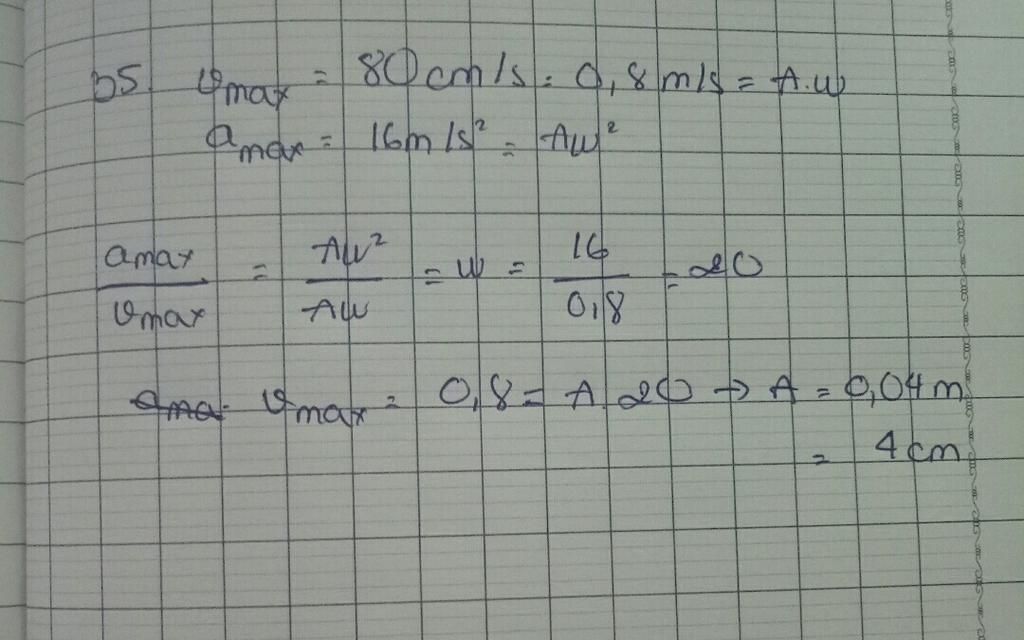 b5. vmax = 80 cm/s = 0,8 m/s = A.ω
amax = 16m/s² = Aω²
amax / vmax = Aω² / Aω = ω = 16 / 0,8 = 20
ama vmax = 0,8 = A.20 → A = 0,04 m
= 4 cm